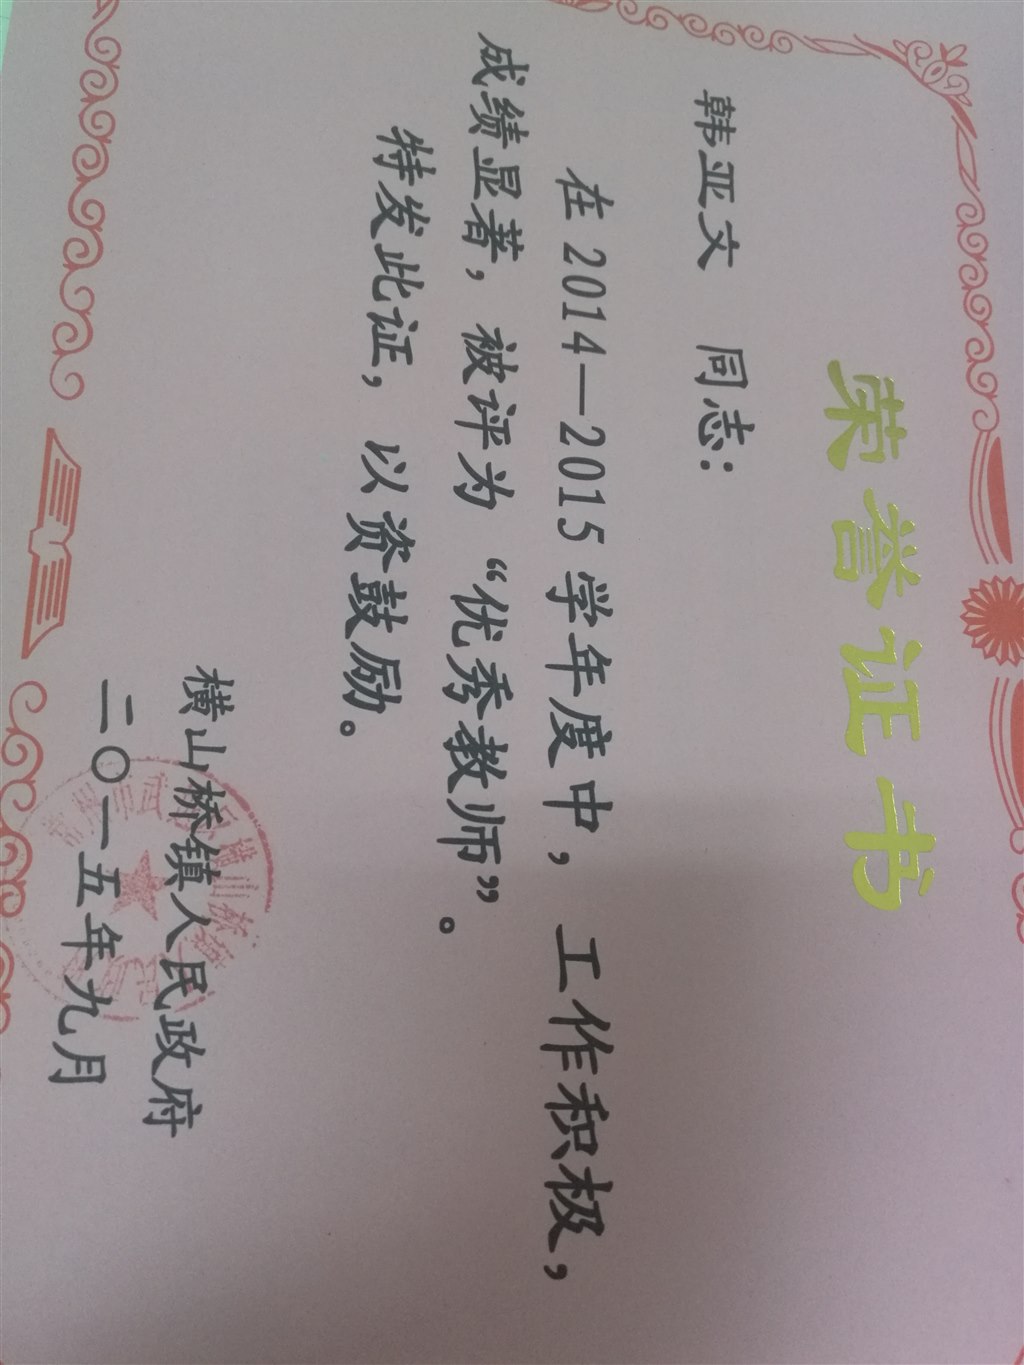 荣誉证书
韩亚文 同志：
在2014—2015学年度中，工作积极，
成绩显著，被评为“优秀教师”。
特发此证，以资鼓励。
横山桥镇人民政府
二〇一五年九月